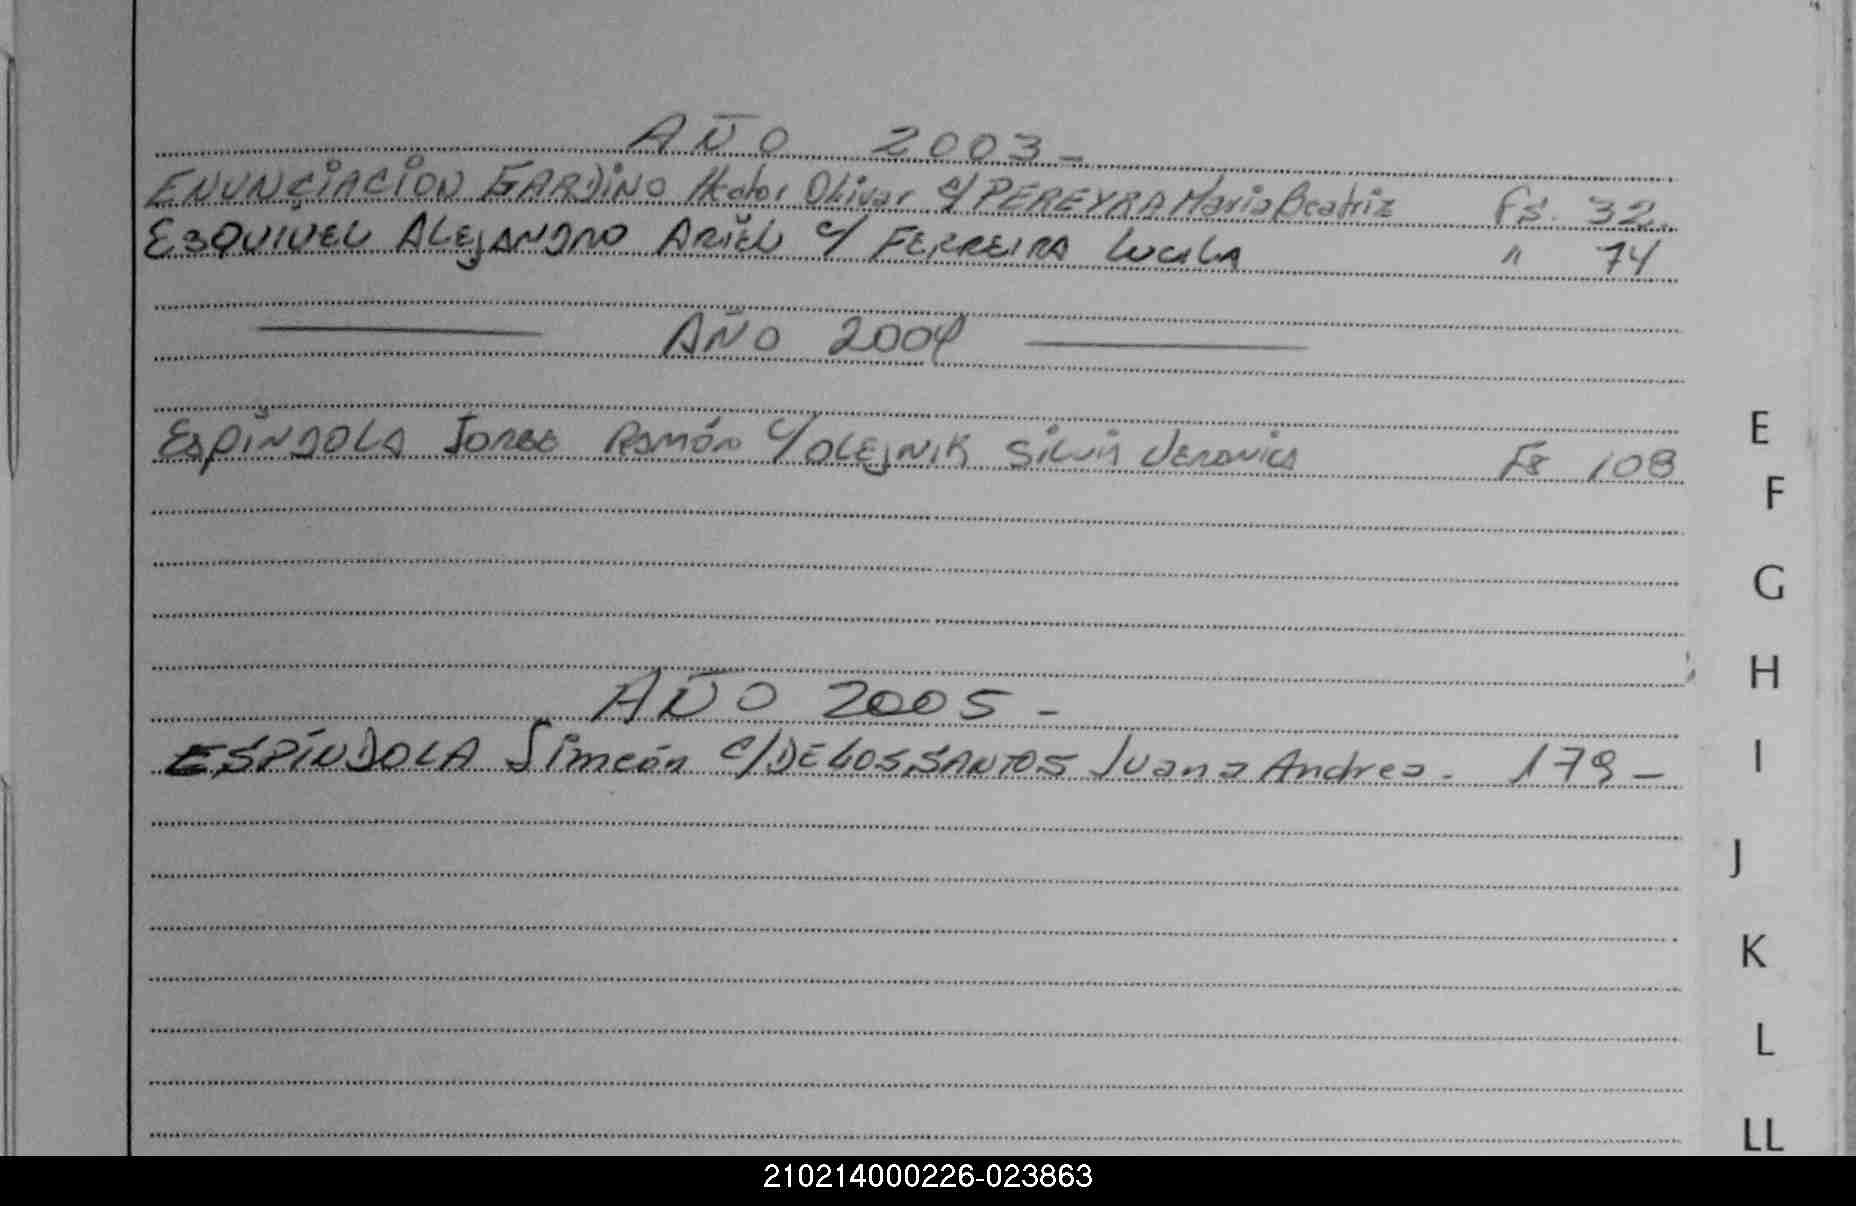 AÑO 2003-
ENUNCIACION GARDINO Hector Olivar c/ PEREYRA Maria Beatriz Fs. 32.
ESQUIVEL ALEJANDRO ARIEL c/ FERREIRA LUCILA " 74
AÑO 2004
ESPINDOLA JORGE RAMÓN c/ OLEJNIK SILVIA VERONICA Fs 108
AÑO 2005-
ESPÍNDOLA Simeón c/ DE LOS SANTOS Juana Andrea. 179-
E
F
G
H
I
J
K
L
LL
210214000226-023863